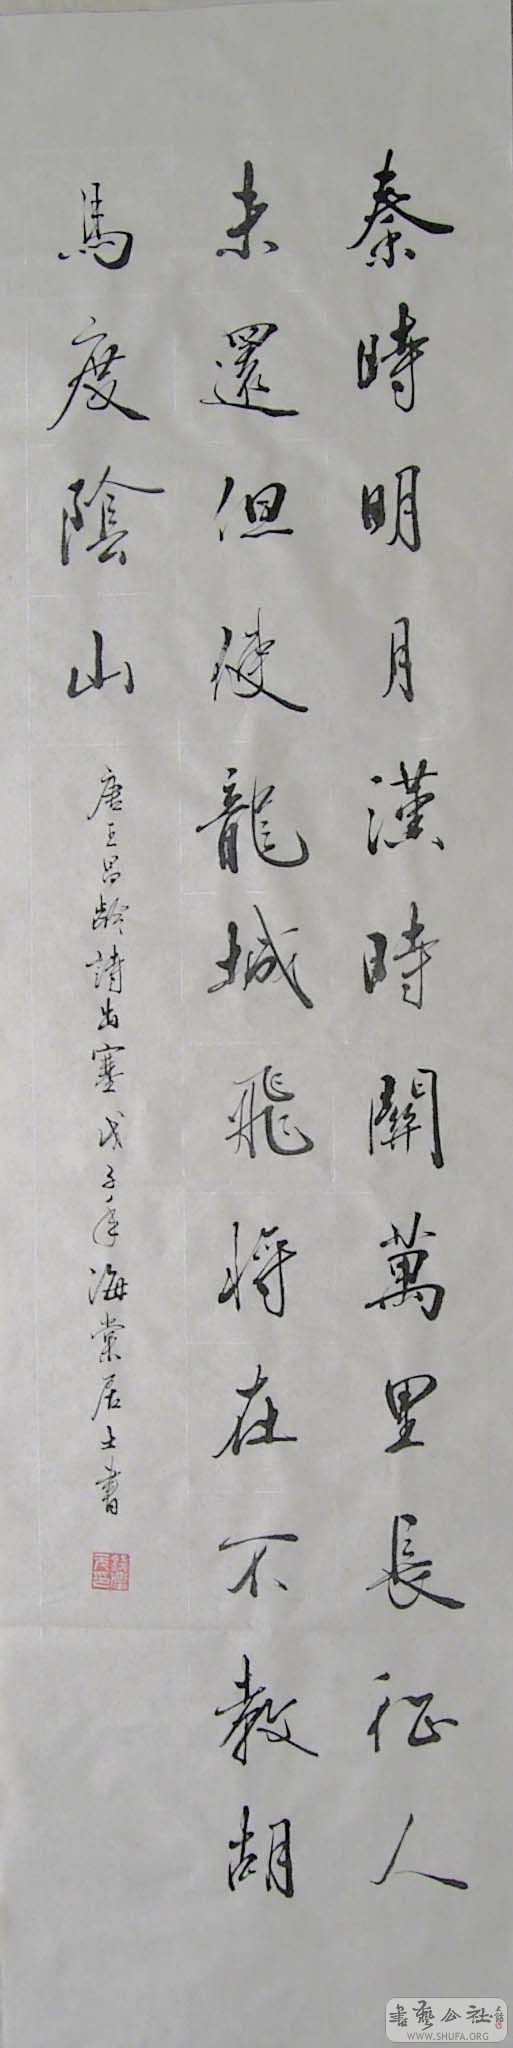 秦時明月漢時關萬里長征人
未還但使龍城飛將在不教胡
馬度陰山
唐王昌齡詩出塞戊子年海棠居士書
書藝公社
WWW.SHUFA.ORG